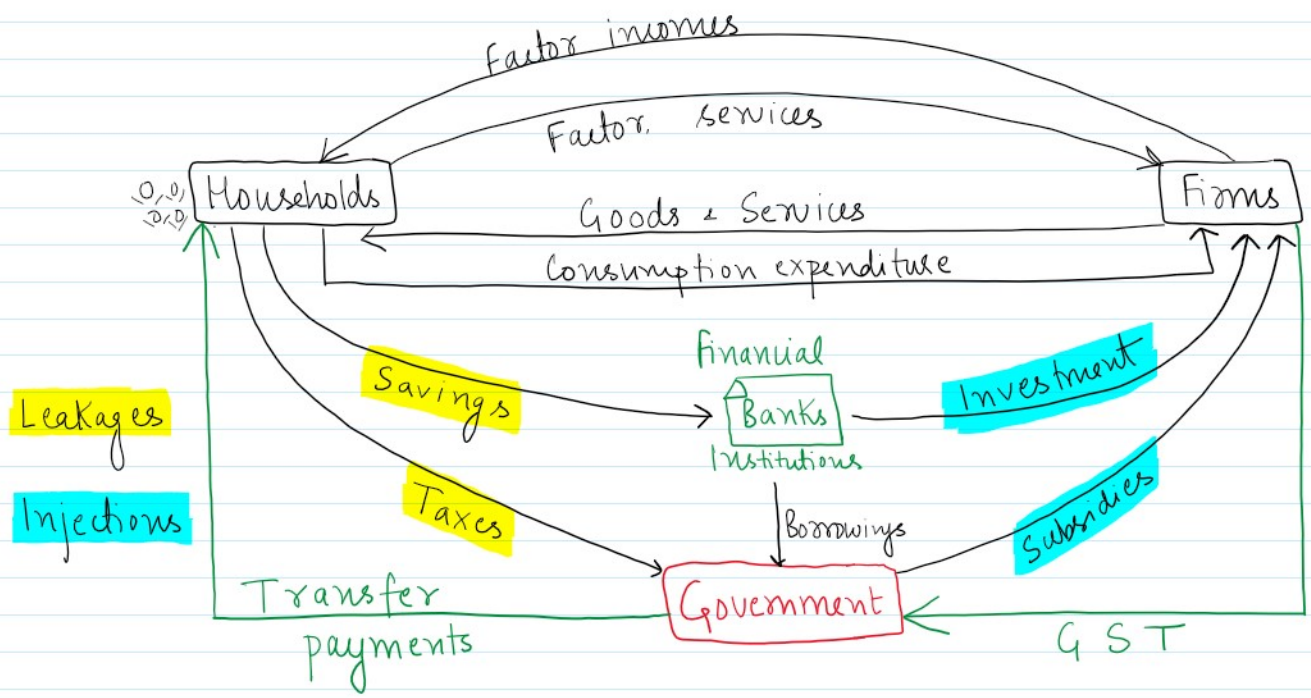 Factor incomes
Factor services
Households
Firms
Goods & Services
Consumption expenditure
Financial
Savings
Banks
Investment
Leakages
Institutions
Taxes
Injections
Borrowings
Subsidies
Transfer
payments
Government
GST